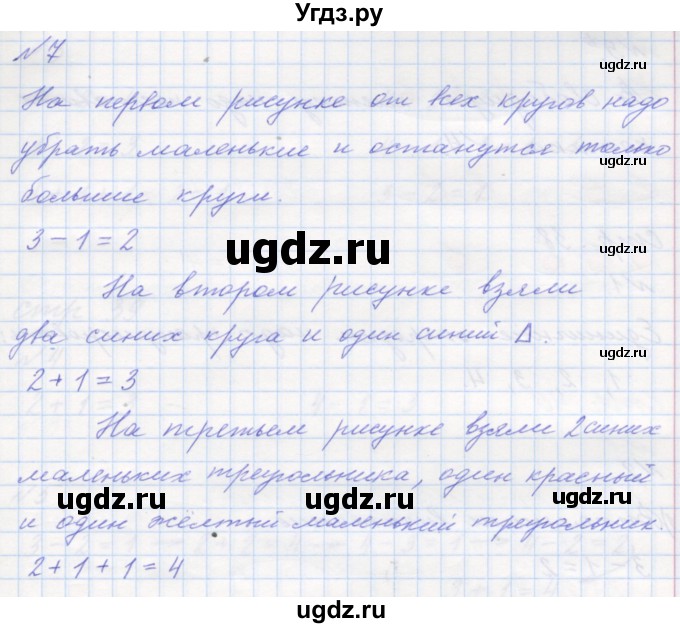 Угдз.ру
№7
ugdz.ru
На первом рисунке от всех кругов надо
ugdz.ru
убрать маленькие и останутся только
ugdz.ru
большие круги.
3 - 1 = 2
ugdz.ru
ugdz.ru
На втором рисунке взяли
два синих круга и один синий Δ.
ugdz.ru
2 + 1 = 3
На третьем рисунке взяли 2 синих
ugdz.ru
маленьких треугольника, один красный
ugdz.ru
ugdz.ru
и один жёлтый маленький треугольник.
ugdz.ru
2 + 1 + 1 = 4
ugdz.ru
ugdz.ru